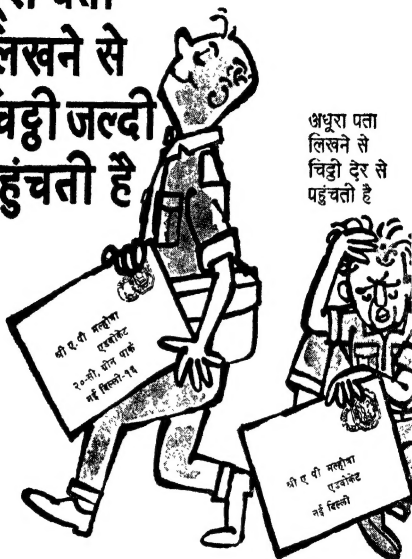 पता
लिखने से
चिट्ठी जल्दी
पहुंचती है
अधूरा पता
लिखने से
चिट्ठी देर से
पहुंचती है
श्री ए. पी मल्होत्रा
एडवोकेट
२०-सी, ग्रीन पार्क
नई दिल्ली-१६
श्री ए पी मल्होत्रा
एडवोकेट
नई दिल्ली